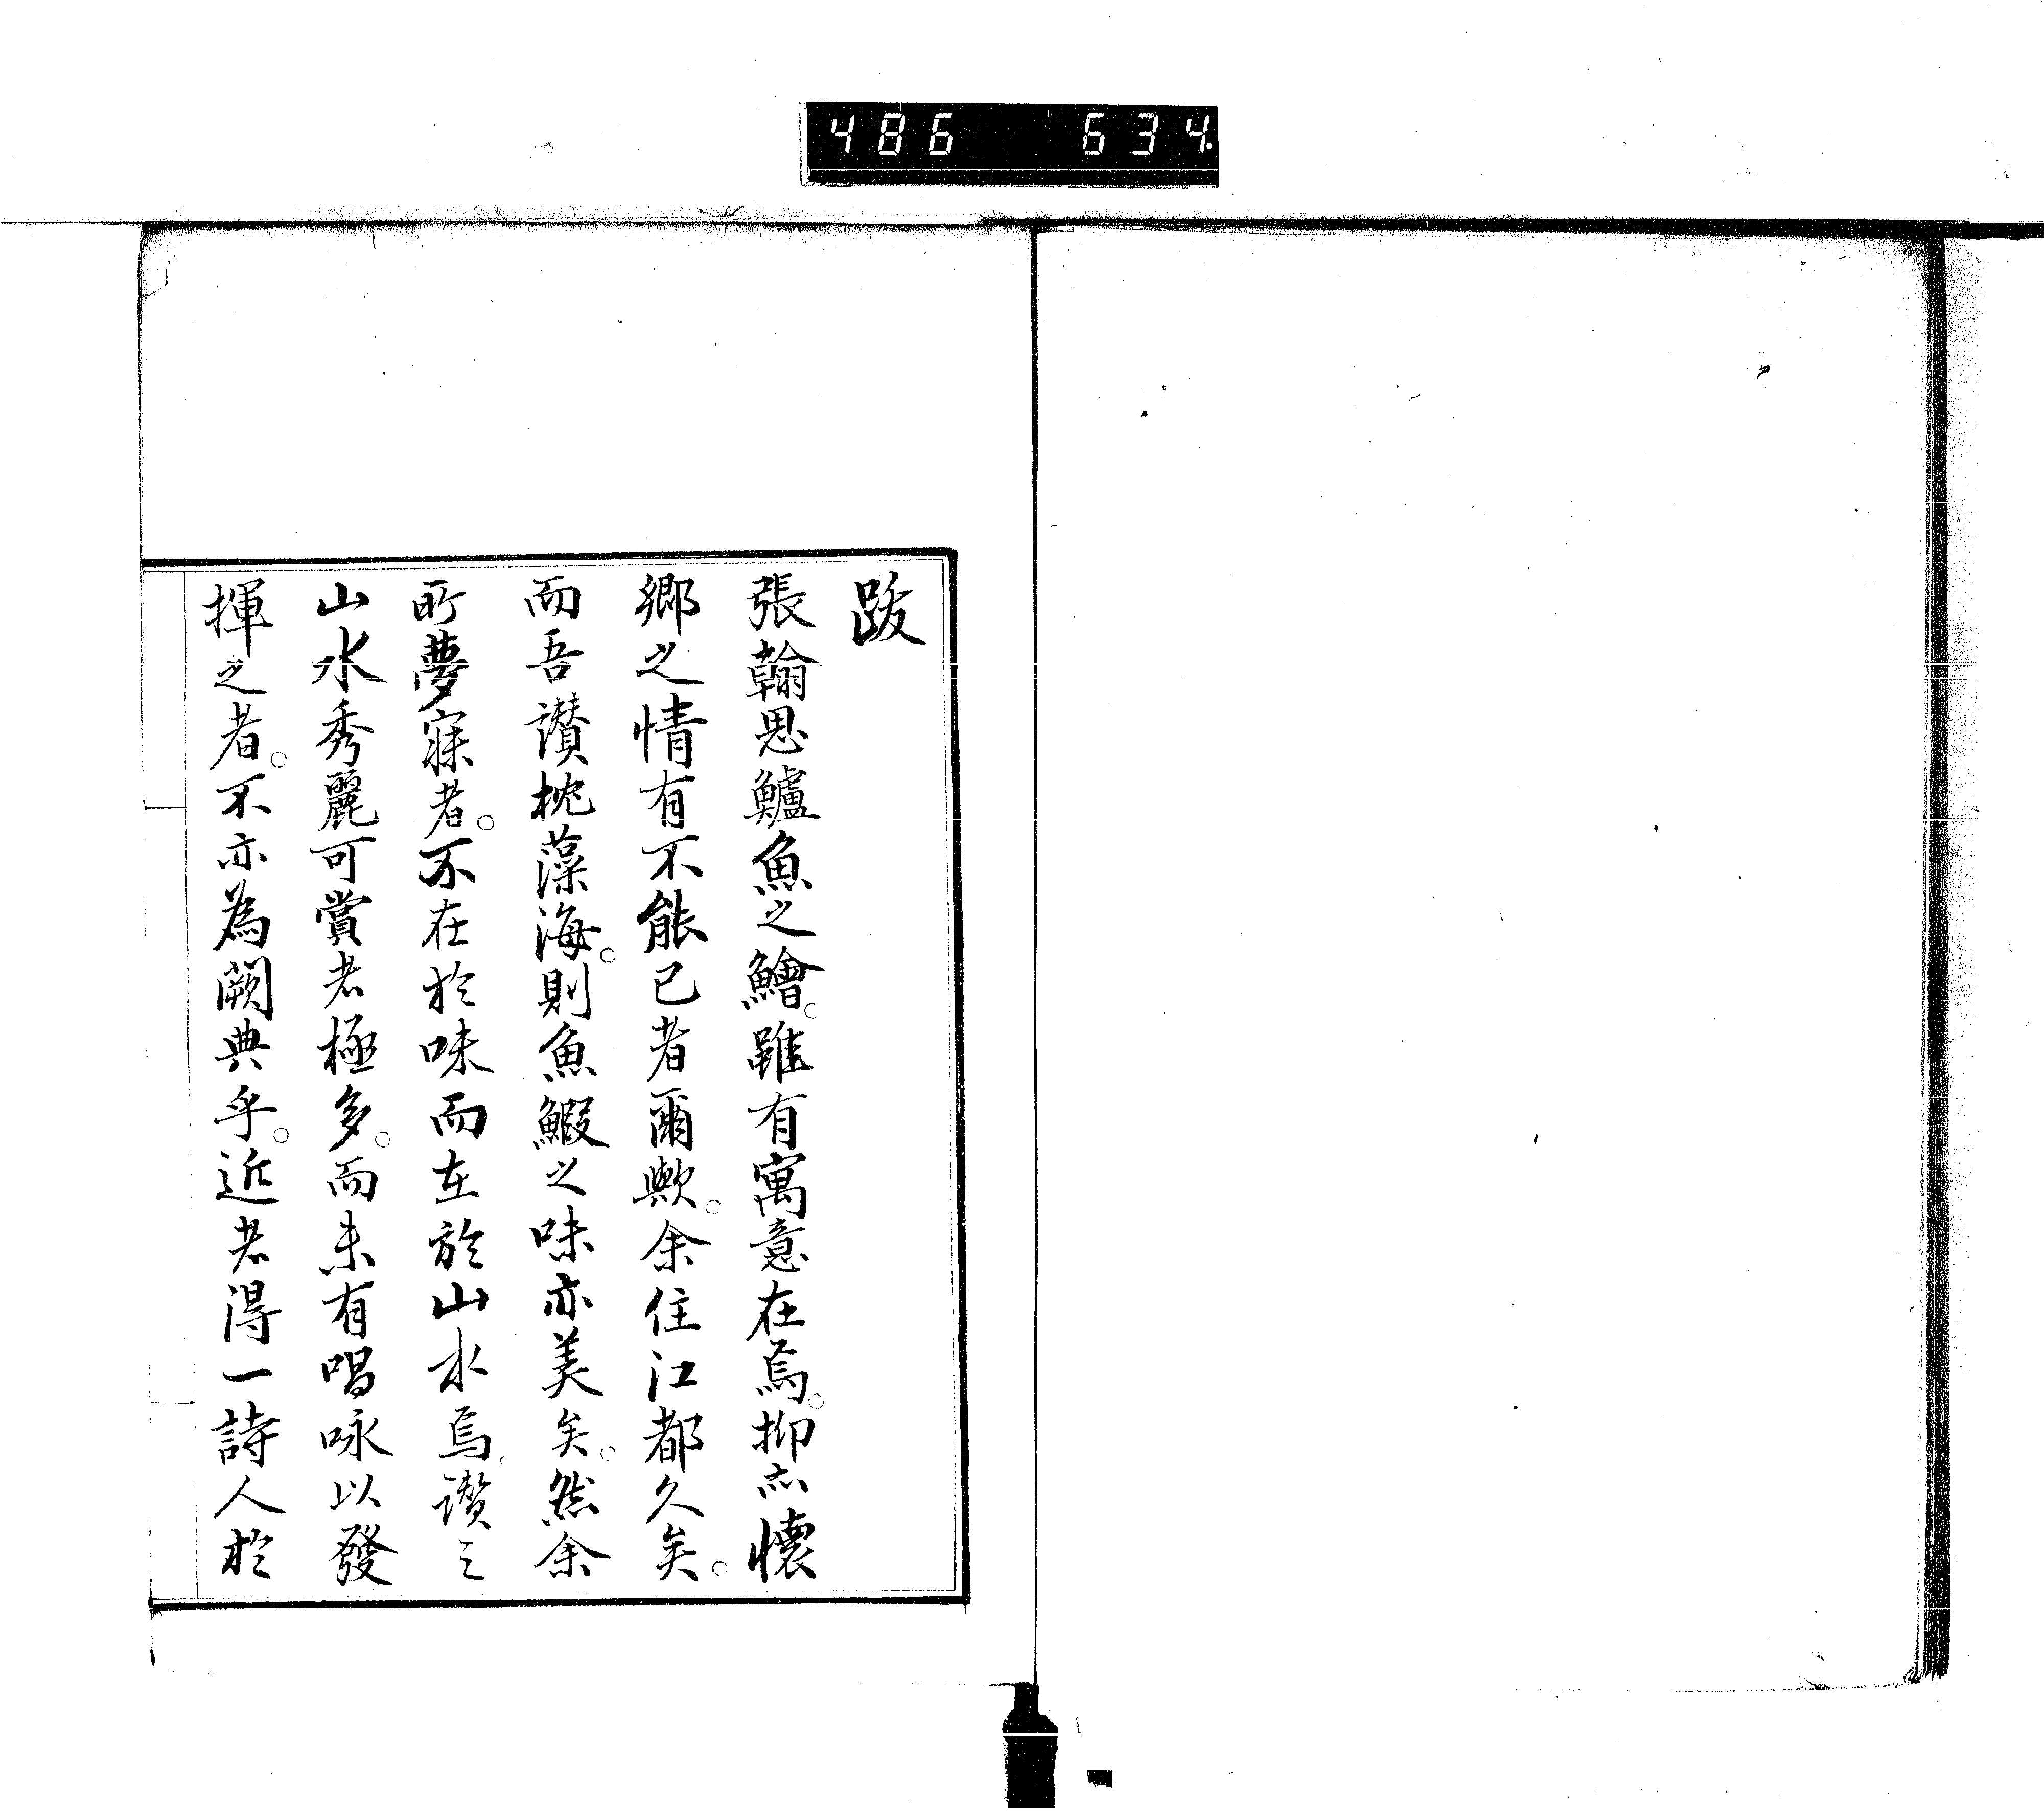 486 634
跋
張翰思鱸魚之鱠。雖有寓意在焉。抑亦懷
鄉之情有不能已者爾歟。余住江都久矣。
而吾讃枕藻海。則魚鰕之味亦美矣。然余
所夢寐者。不在於味而在於山水焉。讃之
山水秀麗可賞者極多。而未有唱咏以發
揮之者。不亦為闕典乎。近者得一詩人於